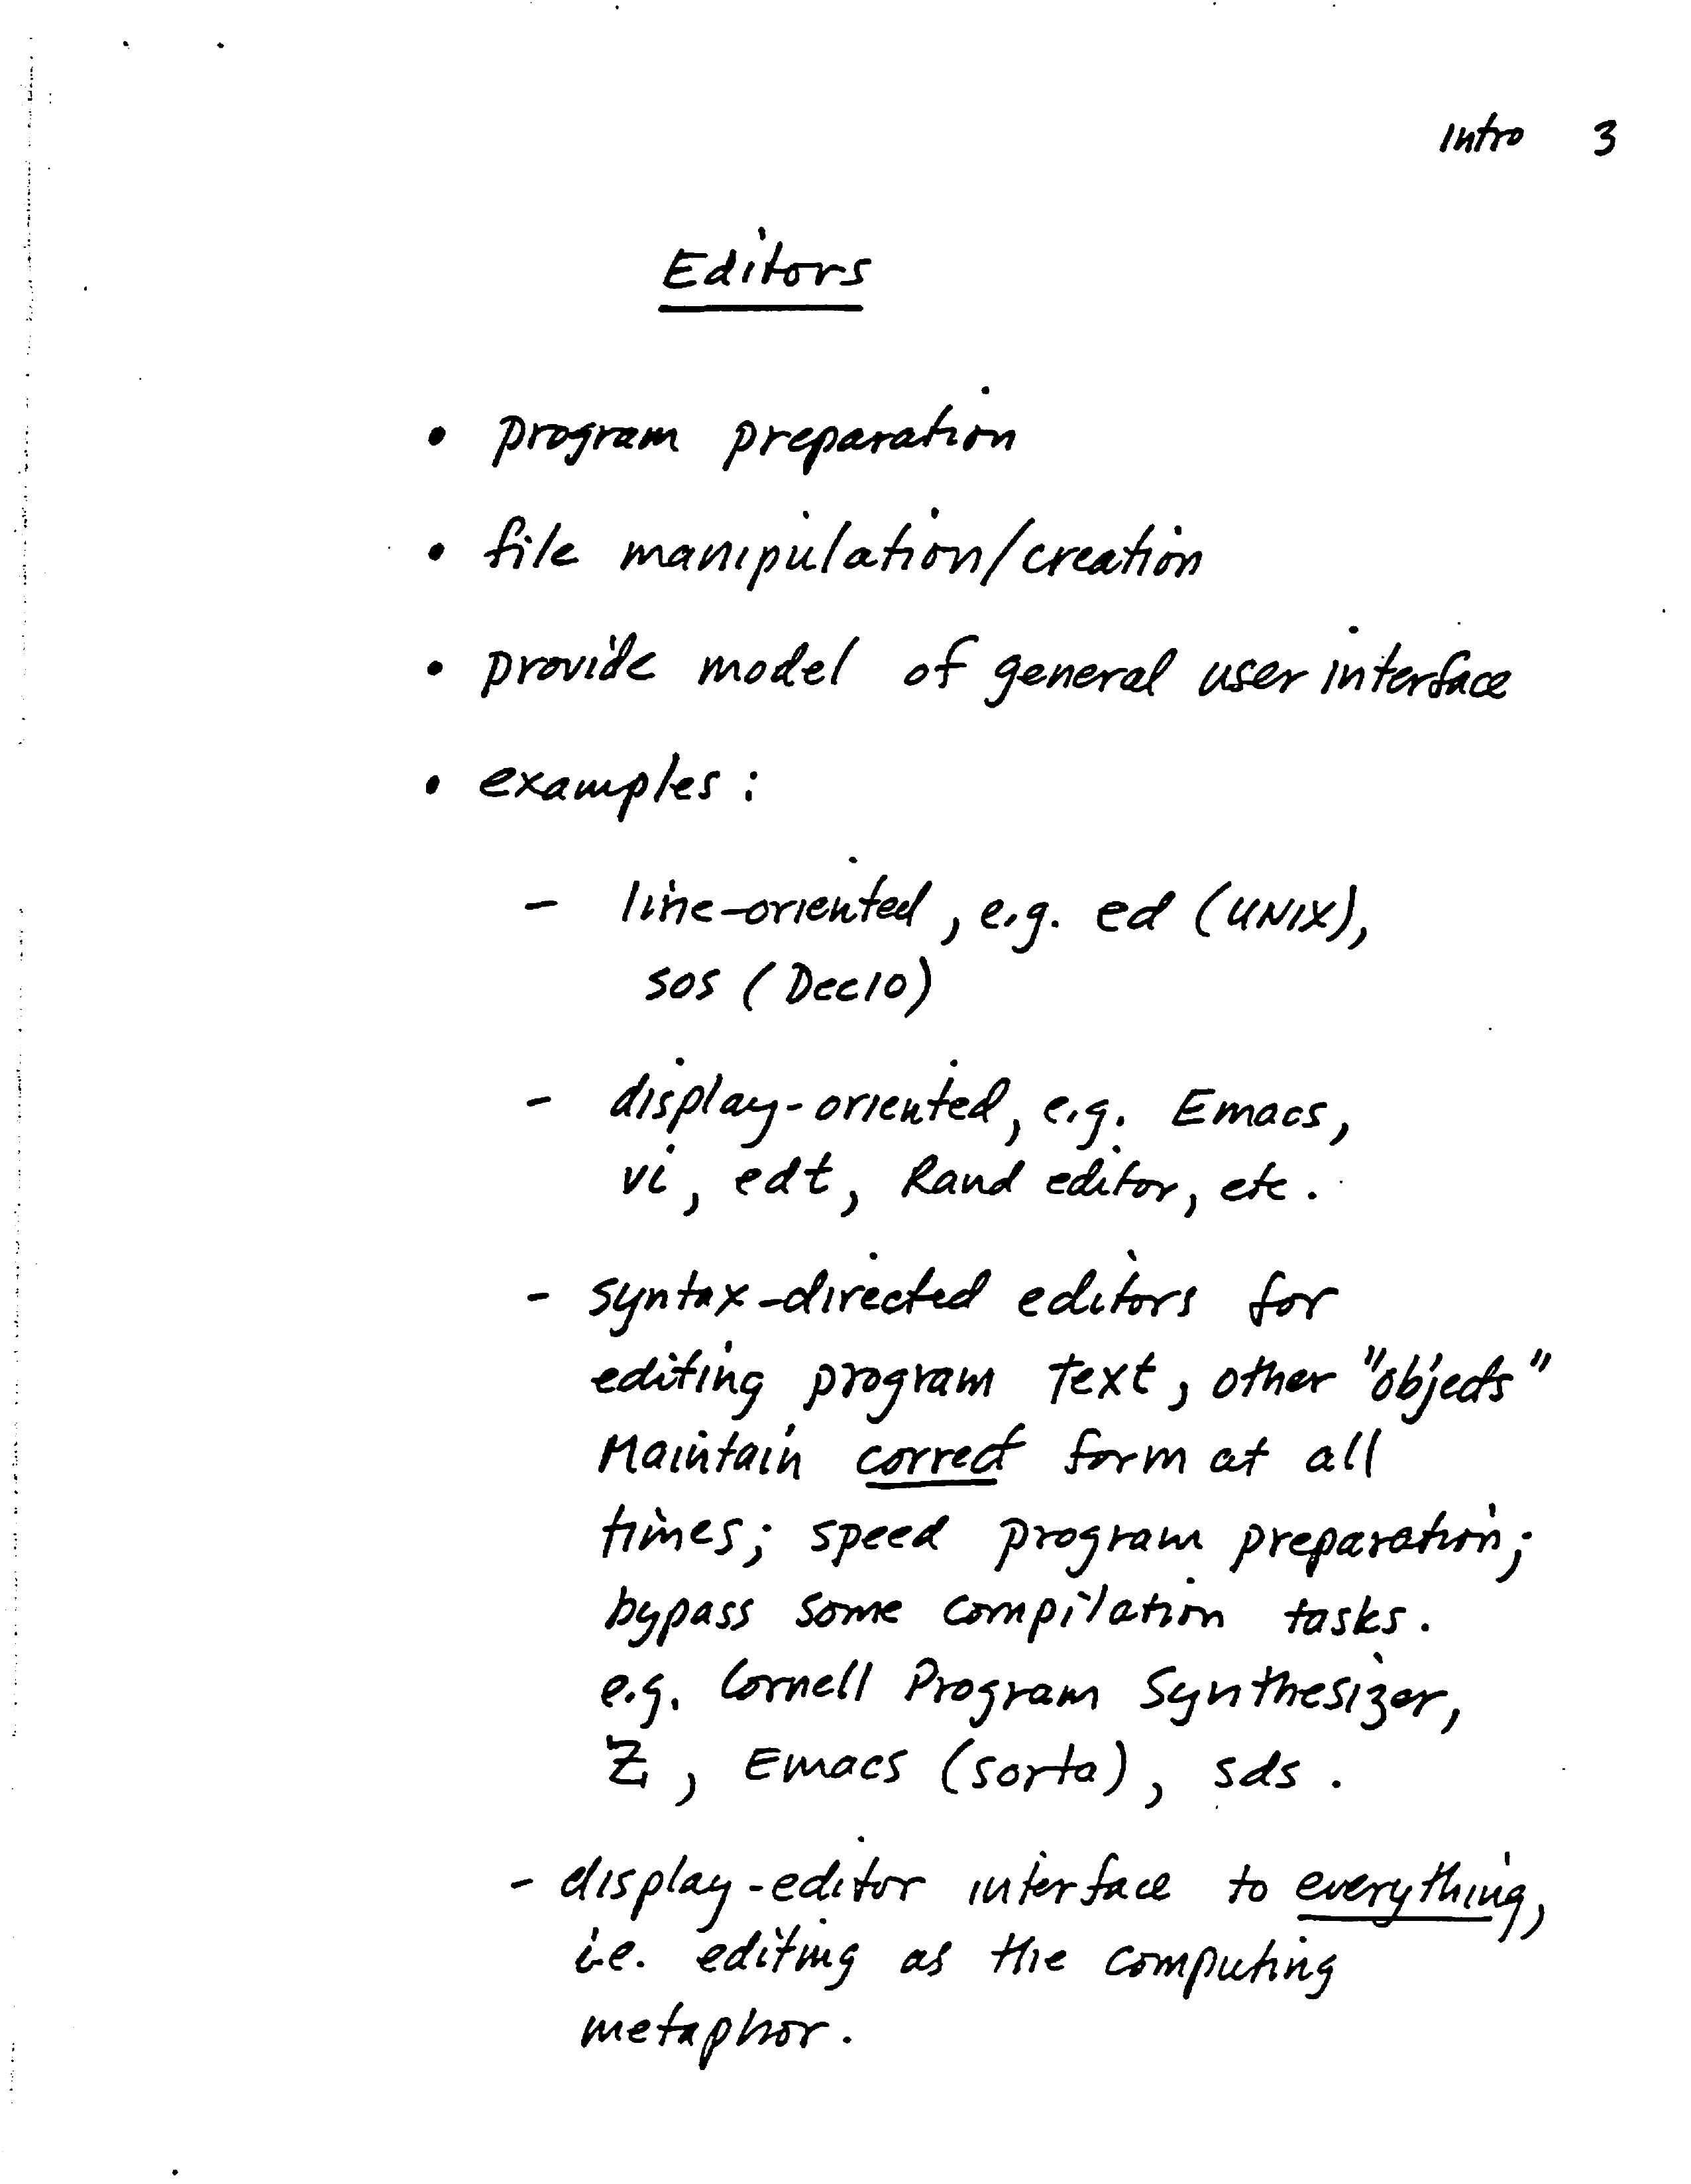 Intro 3
Editors
• program preparation
• file manipulation/creation
• provide model of general user interface
• examples :
- line-oriented, e.g. ed (UNIX),
sos (Dec10)
- display-oriented, e.g. Emacs,
vi, edt, Rand editor, etc.
- syntax-directed editors for
editing program text, other "objects"
Maintain correct form at all
times; speed program preparation;
bypass some compilation tasks.
e.g. Cornell Program Synthesizer,
Z, Emacs (sorta), sds.
- display-editor interface to everything,
i.e. editing as the computing
metaphor.